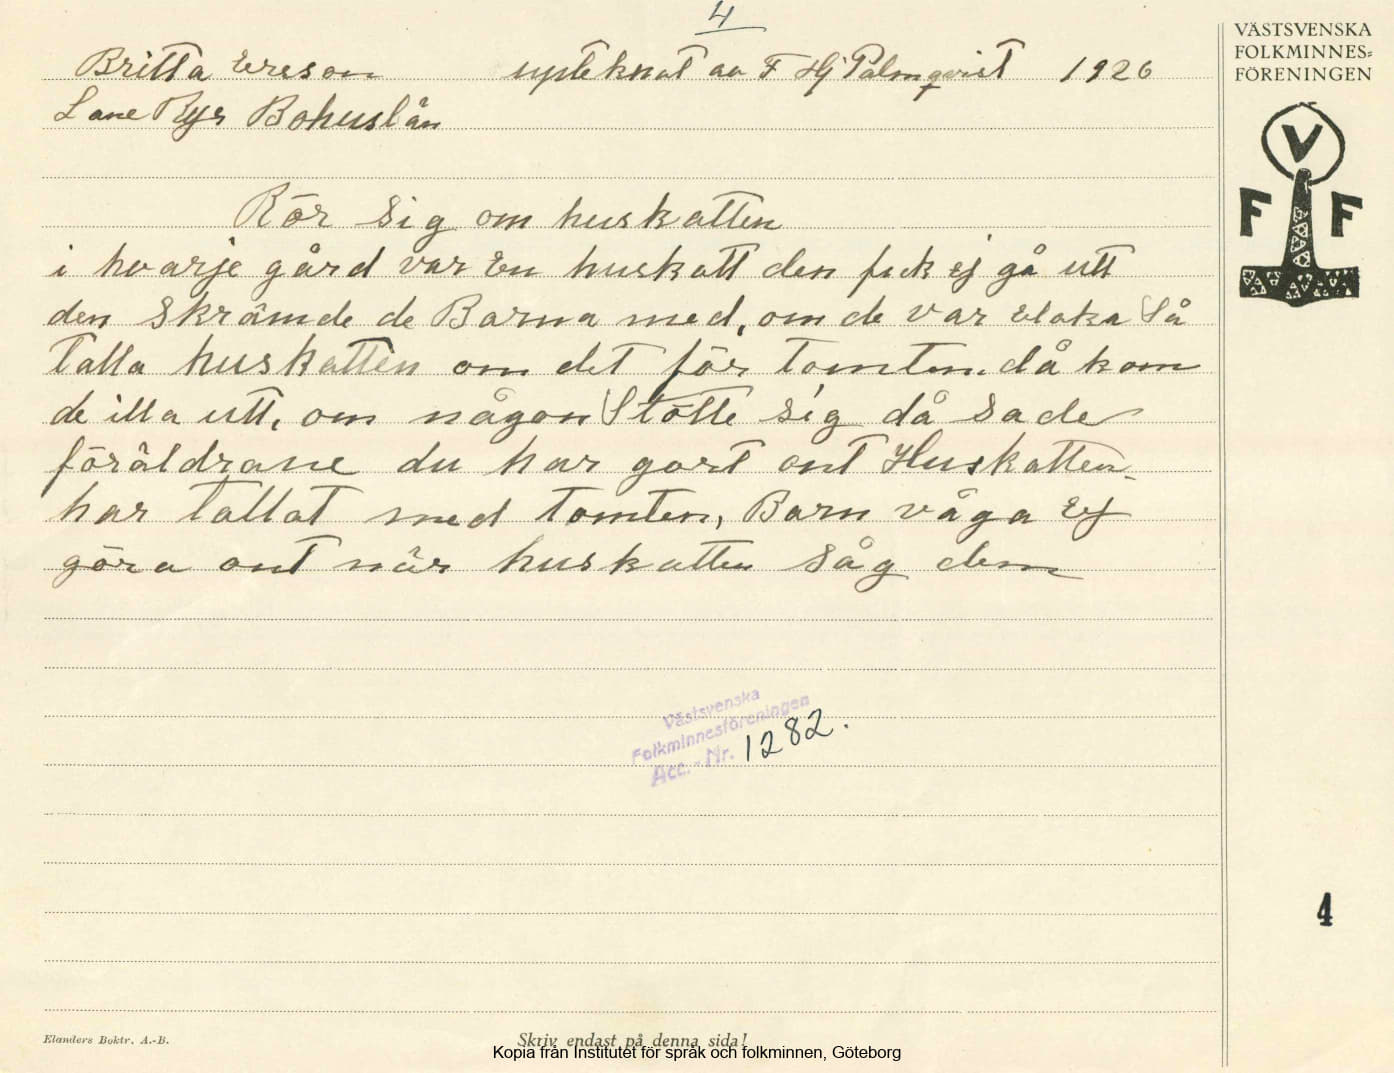 4
Britta Ereson upteknat av F Hj Palmqvist 1926
Lane Ryr Bohuslän
Rör sig om huskatten
i hvarje gård var En huskatt den fick ej gå utt
den skrämde de Barna med, om de var elaka Så
talla huskatten om det för tomten. då kom
de illa utt, om någon Stötte sig då sade
föräldrane du har gort ont Huskatten
har tallat med tomten, Barn våga Ej
göra ont när huskatten såg dem
Västsvenska
Folkminnesföreningen
Acc.-Nr. 1282.
VÄSTSVENSKA
FOLKMINNES=
FÖRENINGEN
V
F F
4
Elanders Boktr. A.-B.
Skriv endast på denna sida!
Kopia från Institutet för språk och folkminnen, Göteborg